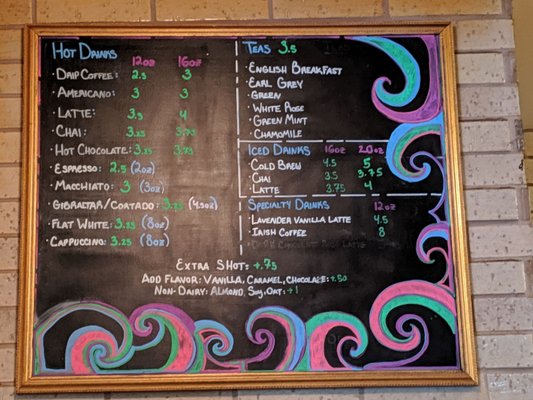 HOT DRINKS 12oz 16oz
· DRIP COFFEE: 2.5 3
· AMERICANO: 3 3
· LATTE: 3.5 4
· CHAI: 3.25 3.75
· HOT CHOCOLATE: 3.25 3.75
· ESPRESSO: 2.5 (2oz)
· MACCHIATO: 3 (3oz)
· GIBRALTAR/CORTADO: 3.25 (4.5oz)
· FLAT WHITE: 3.25 (8oz)
· CAPPUCCINO: 3.25 (8oz)
TEAS 3.5
· ENGLISH BREAKFAST
· EARL GREY
· GREEN
· WHITE ROSE
· GREEN MINT
· CHAMOMILE
ICED DRINKS 16oz 20oz
· COLD BREW 4.5 5
· CHAI 3.5 3.75
· LATTE 3.75 4
SPECIALTY DRINKS 12oz
· LAVENDER VANILLA LATTE 4.5
· IRISH COFFEE 8
EXTRA SHOT: +.75
ADD FLAVOR: VANILLA, CARAMEL, CHOCOLATE: +.50
NON-DAIRY: ALMOND, SOY, OAT: +1